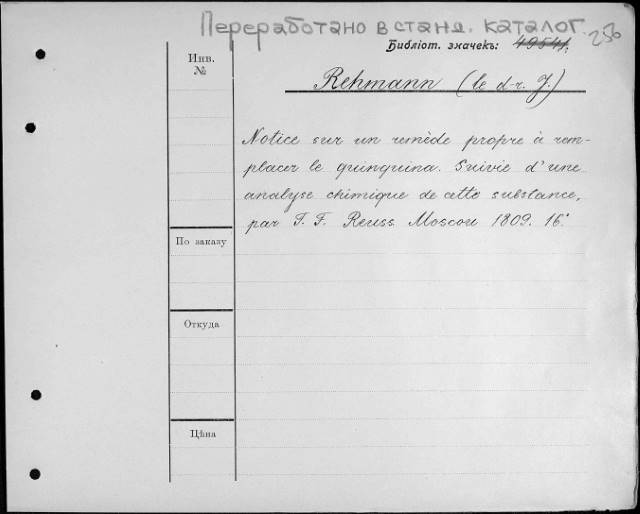 Переработано в станд. каталог. 256
Библіот. значекъ: 49541.
Инв.
№
Rehmann (le d-r. J.)
Notice sur un remède propre à rem-
placer le quinquina. Suivie d'une
analyse chimique de cette substance,
par F. F. Reuss. Moscou 1809. 16°.
По заказу
Откуда
Цѣна